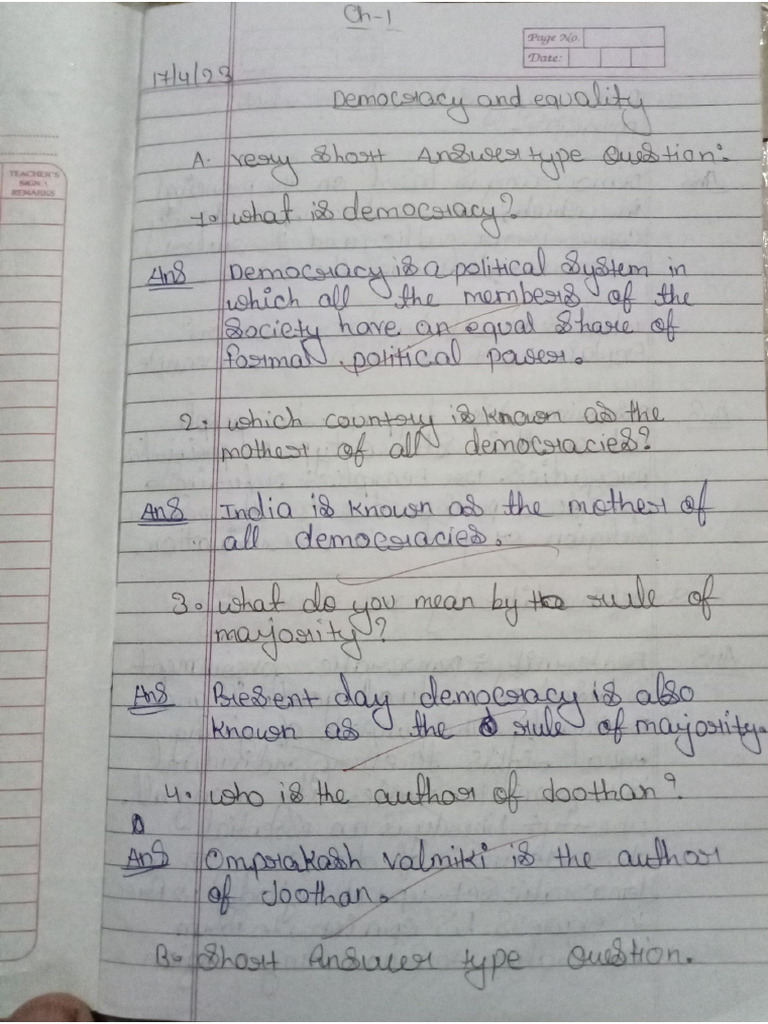 Ch-1
Page No.
Date:
17/4/23
Democracy and equality
TEACHER'S
SIGN /
REMARKS
A. Very Short Answer type Question:
1. What is democracy?
Ans Democracy is a political System in
which all the members of the
Society have an equal Share of
formal political power.
2. which country is known as the
mother of all democracies?
Ans India is known as the mother of
all democracies.
3. what do you mean by rule of
majority?
Ans Present day democracy is also
known as the rule of majority.
4. who is the author of Joothan?
Ans Omprakash valmiki is the author
of Joothan.
B. Short Answer type Question.